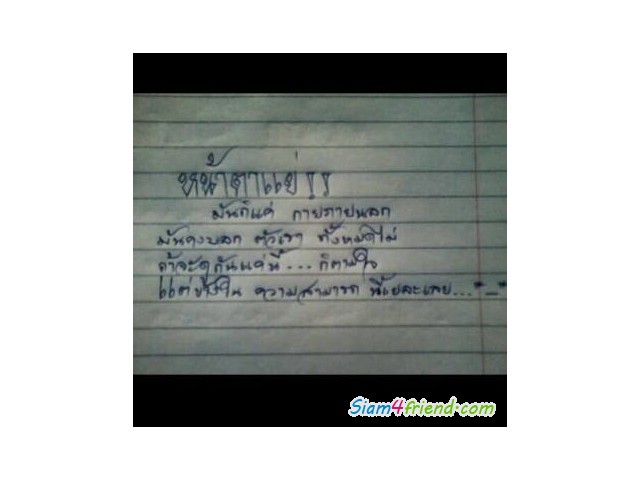 หน้าตาแย่!!
มันก็แค่ กายภายนอก
มันคงบอก ตัวเรา ทั้งหมดไม่
ถ้าจะดูกันแค่นี้...ก็ตามใจ
แต่ข้างใน ความสามารถ นี้เยอะเลย..."_"
Siam4friend.com